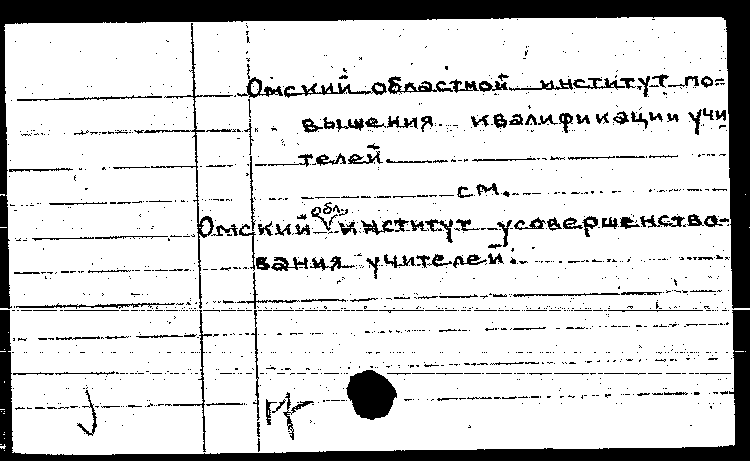 Омский областной институт по=
вышения квалификации учи
телей.
см.
Омский обл. институт усовершенство-
вания учителей.